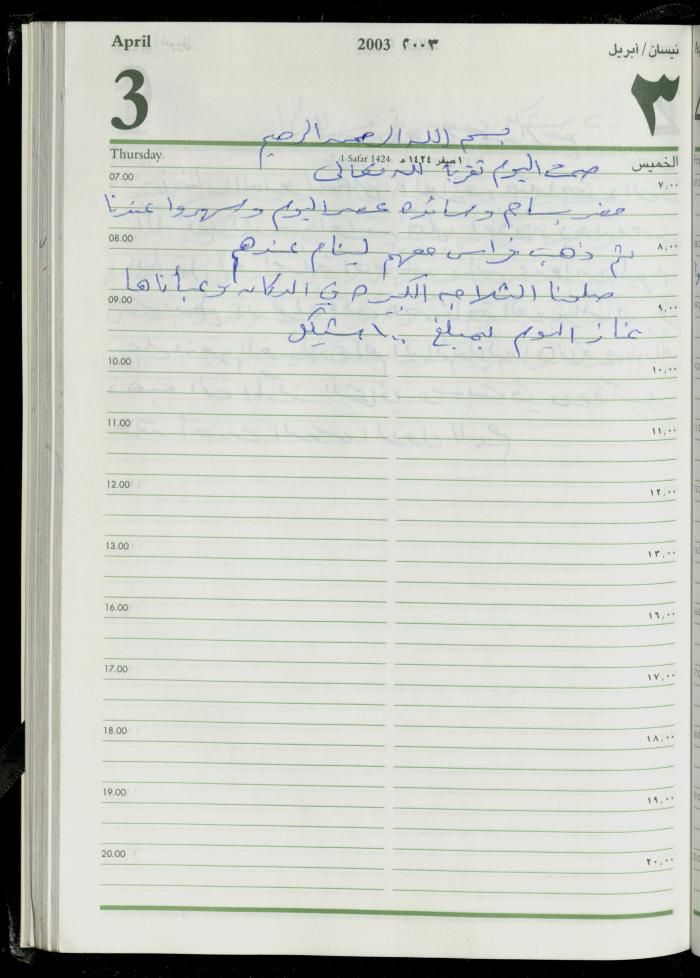 April 2003 ٢٠٠٣ نيسان / أبريل
3 ٣
بسم الله الرحمن الرحيم
Thursday 1 Safar 1424 ١ صفر ١٤٢٤ هـ الخميس
صمت اليوم تقرباً لله تعالى
07.00 ٧,٠٠
حضر بسام وسائده عصر اليوم وسهروا عندنا
08.00 ٨,٠٠
ثم ذهب فراس معهم لينام عندهم
صلحنا الثلاجه الكبيره في الدكانه وعبأناها
09.00 ٩,٠٠
غاز اليوم بمبلغ ١٠٠ شيكل
10.00 ١٠,٠٠
11.00 ١١,٠٠
12.00 ١٢,٠٠
13.00 ١٣,٠٠
16.00 ١٦,٠٠
17.00 ١٧,٠٠
18.00 ١٨,٠٠
19.00 ١٩,٠٠
20.00 ٢٠,٠٠